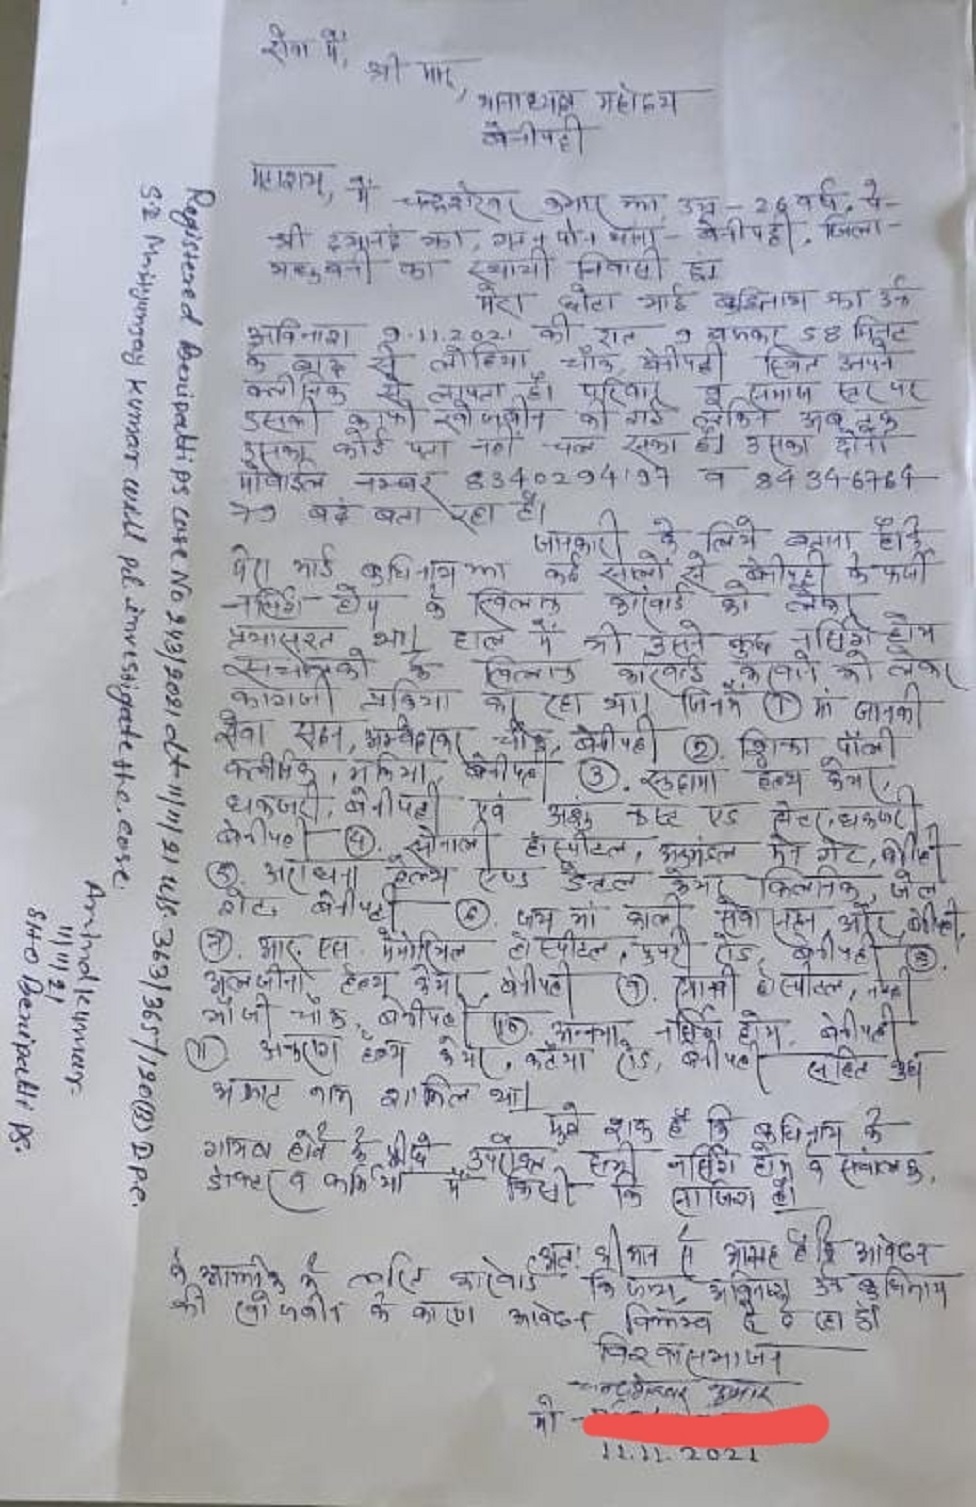 सेवा में,
श्री मान,
थानाध्यक्ष महोदय
बेनीपट्टी
महाशय, मैं चन्द्रशेखर कुमार झा, उम्र - 26 वर्ष, पे-
श्री दयानंद झा, ग्राम पो० थाना - बेनीपट्टी, जिला -
मधुबनी का स्थायी निवासी हूं।
मेरा छोटा भाई बुद्धिनाथ झा उर्फ
अविनाश 9.11.2021 की रात 9 बजकर 58 मिनट
के बाद से लोहिया चौक, बेनीपट्टी स्थित अपने
क्लीनिक से लापता है। परिवार व समाज स्तर पर
इसकी काफी खोजबीन की गई लेकिन अब तक
इसका कोई पता नहीं चल सका है। उसका दोनों
मोबाईल नम्बर 8340294197 व 84346764
79 बंद बता रहा है।
जानकारी के लिये बताना है कि
मेरा भाई बुधिनाथ झा कई सालों से बेनीपट्टी के फर्जी
नर्सिंग होम के खिलाफ कार्रवाई को लेकर
प्रयासरत था। हाल में भी उसने कुछ नर्सिंग होम
संचालको के खिलाफ कारवाई करवाने को लेकर
कागजी प्रक्रिया कर रहा था। जिनमें (1) मां जानकी
सेवा सदन, अम्बेदकर चौक, बेनीपट्टी (2). शिवा पॉली
क्लीनिक, मकिया, बेनीपट्टी (3). सुदामा हेल्थ केयर,
धकजरी, बेनीपट्टी एवं सेंटर, धकजरी
बेनीपट्टी (4). सोनाली हॉस्पीटल, अनुमंडल मेन गेट, बेनीपट्टी
(5). अराधना हेल्थ एण्ड डेन्टल केयर क्लिनिक, जेल
गेट, बेनीपट्टी (6). जय मां काली सेवा सदन बेनीपट्टी,
(7). आर. एस. मेमोरियल हॉस्पीटल, रोड, बेनीपट्टी (8).
अलजीना हेल्थ केयर, बेनीपट्टी (9). सांची हॉस्पीटल,
चौक, बेनीपट्टी (10). अनन्या नर्सिंग होम, बेनीपट्टी
(11). अनुराग हेल्थ केयर, कटैया रोड, बेनीपट्टी सहित कुछ
नाम शामिल था।
मुझे शक है कि बुधिनाथ के
गायब होने के पीछे उपरोक्त सभी नर्सिंग होम व संचालक,
डॉक्टर व कर्मियों में किसी कि साजिश है।
अतः श्रीमान से आग्रह है कि आवेदन
के आलोक में त्वरित कारवाई कि जाय, अविनाश उर्फ बुधिनाथ
की खोजबीन के कारण आवेदन विलम्ब से दे रहा हूँ।
विश्वासभाजन
चन्द्रशेखर कुमार
मो -
11.11.2021
Registered Benipatti ps case No 293/2021 dt-11/11/21 u/s 363/365/120(B) I.P.C.
S.I Mrityunjay Kumar will pl. investigate the case.
Arvind Kumar
11/11/21
SHO Benipatti PS.